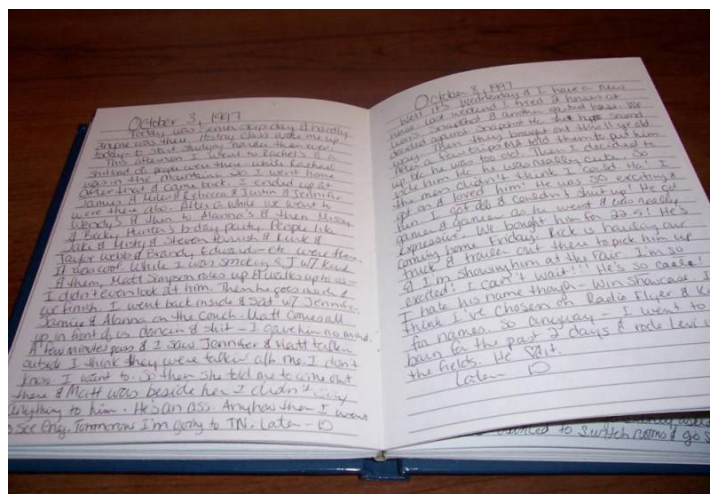 October 3, 1997
Today was senior skip day & hardly
anyone was there. History class woke me up
today to start studying harder than ever.
This afternoon I went to Rachel's &
of people were there while Rachael
was in the mountains. So I went home
after that & came back. I ended up at
James & Miles & Rebecca & Jennifer
were there also. After a while we went to
Wendy's & then to Alanna's & then Missy
& Becky Hunter's b-day party. People like
Jake & Misty & Steven & Kent &
Taylor Webb & Brandy Edwards - etc. were there.
It was cool. While I was smoking a J w/ Kent
& them, Matt Simpson rolls up & walks up to us -
I didn't even look at him. Then he goes inside &
we finish. I went back inside & sat w/ Jennifer,
James & Alanna on the couch. Matt comes all
up in front of us dancin & shit - I gave him no mind.
A few minutes pass & I saw Jennifer & Matt talkin
outside. I think they were talkin abt me. I don't
know. I want to. So then she told me to come out
there & Matt was beside her. I didn't say
anything to him. He's an ass. Anyhow then I went
to see Eng. Tommorow I'm going to TN. Later - D
October 8, 1997
Well it's Wednesday & I have a new
horse. Last weekend I tried 2 horses at
Ivans. Snapshot & another gaited horse. We
decided against Snapshot & the second
one. Then they brought out this 11 yr old
After a few trips Pat told them to put him
up b/c he was too old. Then I decided to
ride him b/c he was really cute. So
the men didn't think I could do it! I
got on & loved him! He was so exciting &
fun. I got off & couldn't shut up! He got
gamier & gamier as he went & was really
expressive. We bought him for 22.5! He's
coming home Friday! Rick is hauling our
truck & trailer out there to pick him up
& I'm showing him at the Fair. I'm so
excited! I can't wait!!! He's so cool!
I hate his name though - Win Showcase. I
think I've chosen Radio Flyer &
for names. So anyway - I went to
barn for the past 2 days & rode Levi
the fields. He
Later - D
to switch rooms & go